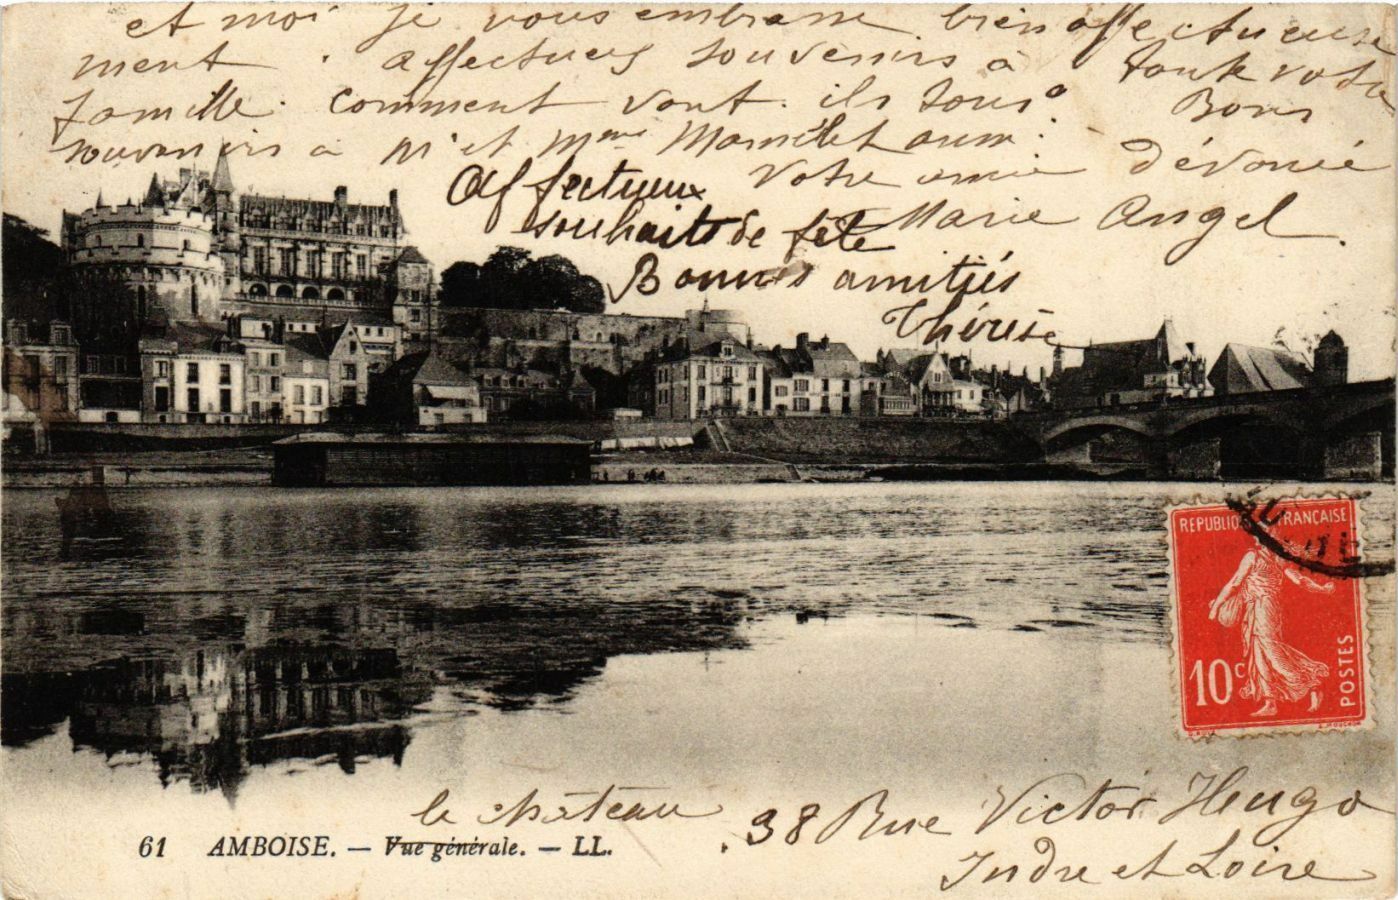 et moi je vous embrasse bien affectueuse
ment. affectueux souvenirs à toute votre
famille. comment vont ils tous? Bons
souvenirs à Mr et Mme aussi.
Votre amie dévouée
Marie Angel.
Affectueux
souhaits de fête
Bonnes amitiés
Thérèse
REPUBLIQUE FRANÇAISE
10c
POSTES
le château
61 AMBOISE. — Vue générale. — LL.
38 Rue Victor Hugo
Indre et Loire